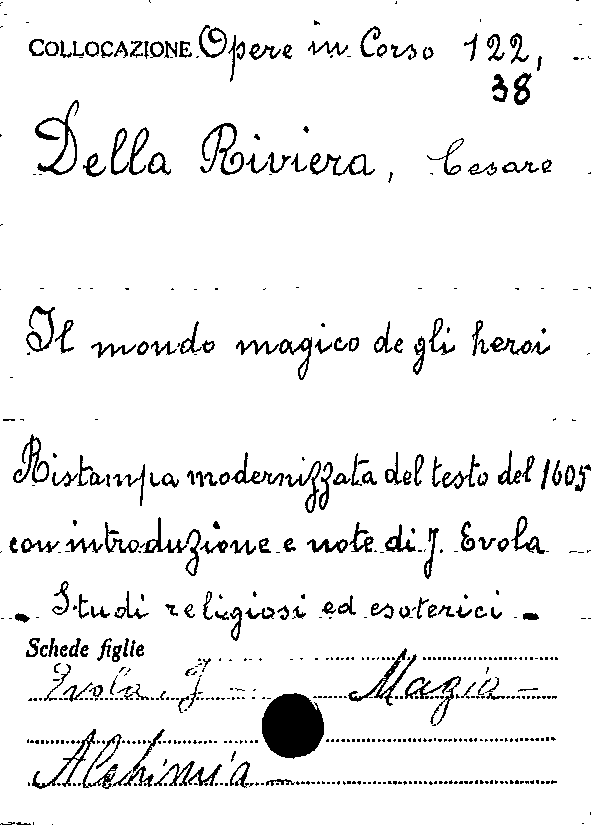 COLLOCAZIONE Opere in Corso 122,
38
Della Riviera, Cesare
Il mondo magico de gli heroi
Ristampa modernizzata del testo del 1605
con introduzione e note di J. Evola
- Studi religiosi ed esoterici -
Schede figlie
Evola, J - Magia -
Alchimia -